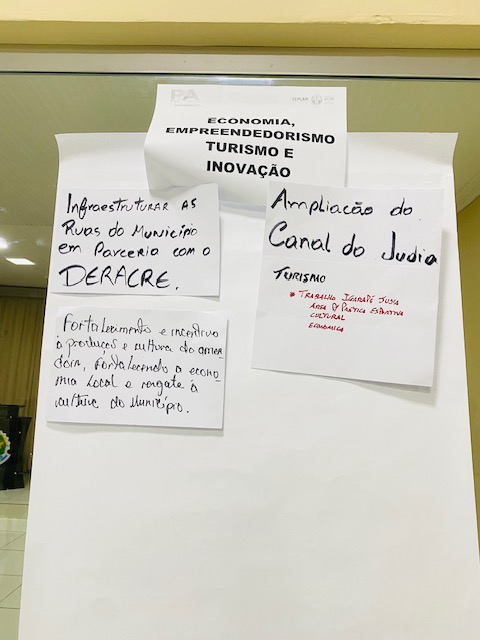 PPA
SEPLAN
ECONOMIA,
EMPREENDEDORISMO
TURISMO E
INOVAÇÃO
Infraestruturar as
Ruas do Município
em Parceria com o
DERACRE.
Fortalecimento e incentivo
à produção e cultura do amen
doim, fortalecendo a econo
mia local e resgate à
cultura do Município.
Ampliação do
Canal do Judia
TURISMO
* TRABALHO IGARAPÉ JUDIA
ÁREA P/ PRÁTICA ESPORTIVA
CULTURAL
ECONÔMICA